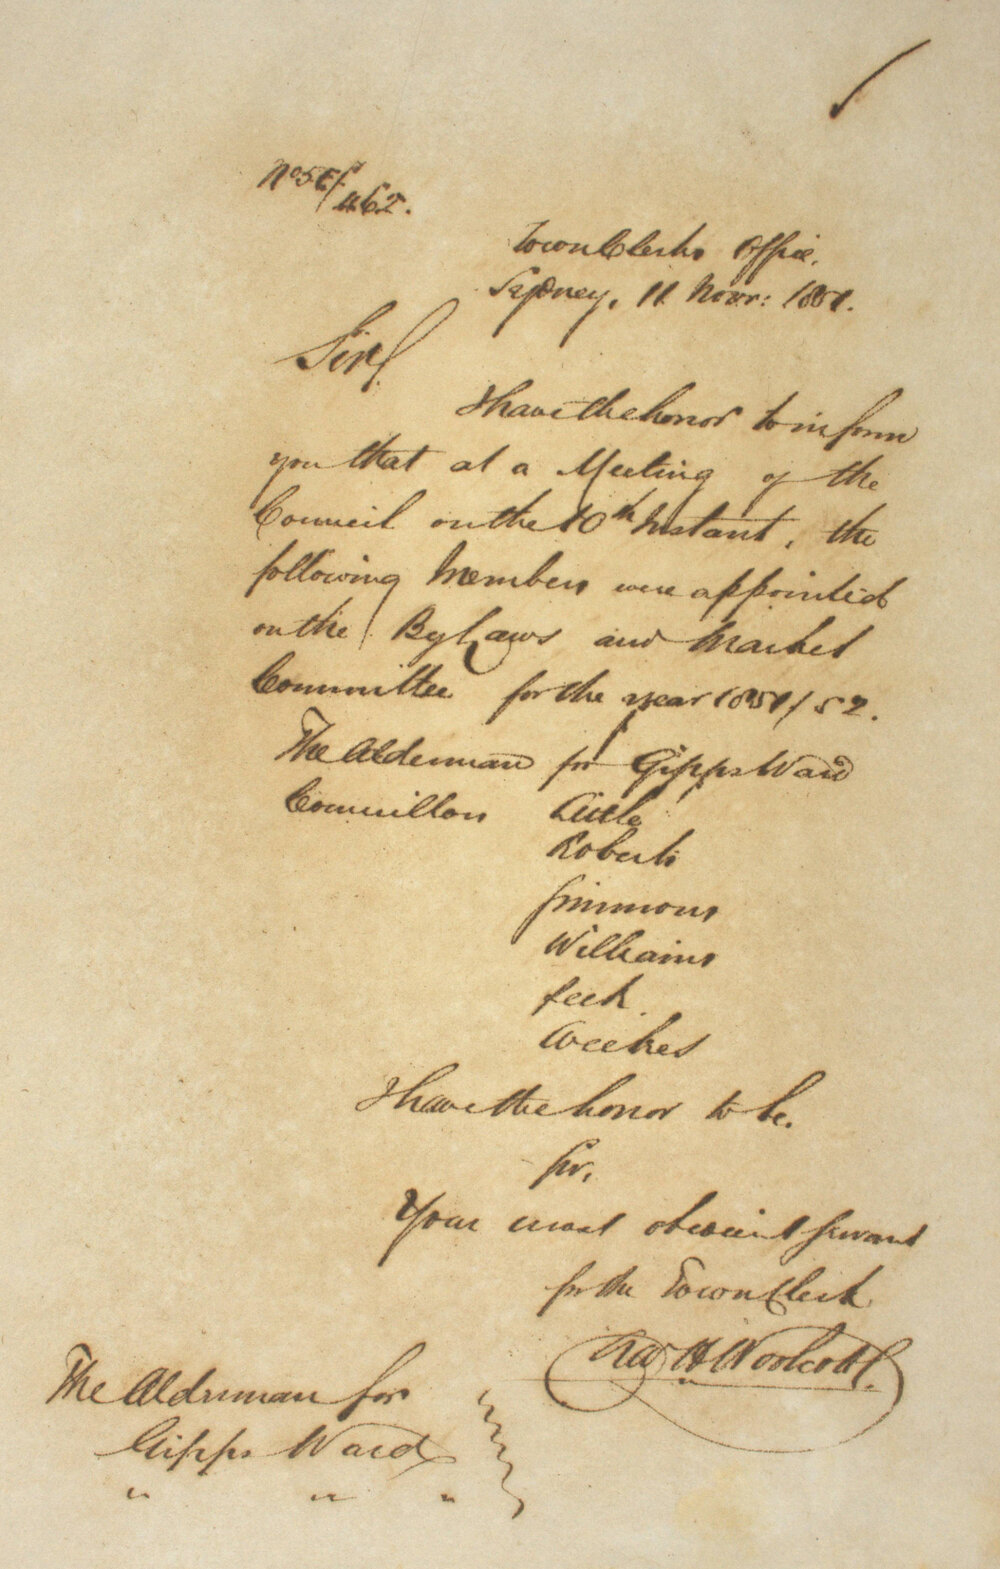 No 51/
462.
Town Clerks Office.
Sydney, 11 Novr: 1851.
Sir,
I have the honor to inform
you that at a Meeting of the
Council on the 10th Instant, the
following Members were appointed
on the By Laws and Market
Committee for the year 1851/52.
The Alderman for Gipps Ward
Councillors Little
Roberts
Simmons
Williams
Peek
Weekes
I have the honor to be.
Sir,
Your most obedient Servant
for the Town Clerk
Chas H Woolcott.
The Alderman for
Gipps Ward
" " "